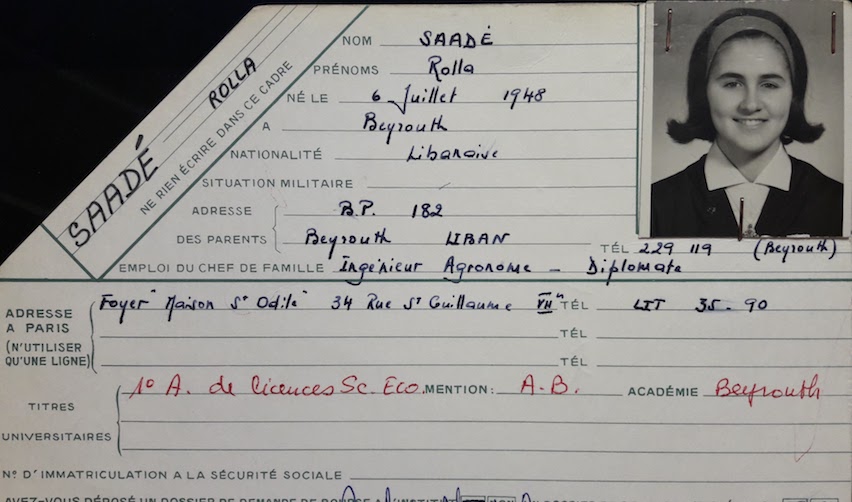 SAADÉ ROLLA
NE RIEN ÉCRIRE DANS CE CADRE
NOM SAADÉ
PRÉNOMS Rolla
NÉ LE 6 Juillet 1948
A Beyrouth
NATIONALITÉ Libanaise
SITUATION MILITAIRE
ADRESSE B.P. 182
DES PARENTS Beyrouth LIBAN TÉL 229 119 (Beyrouth)
EMPLOI DU CHEF DE FAMILLE Ingénieur Agronome - Diplomate
ADRESSE A PARIS (N'UTILISER QU'UNE LIGNE) Foyer "Maison Ste Odile" 34 Rue St Guillaume VII" TÉL LIT 35-90
TÉL
TÉL
TITRES UNIVERSITAIRES 1o A. de licences Sc. Eco. MENTION: A.B. ACADÉMIE Beyrouth
No D'IMMATRICULATION A LA SÉCURITÉ SOCIALE
AVEZ-VOUS DÉPOSÉ UN DOSSIER DE DEMANDE DE BOURSE A L'INSTITUT